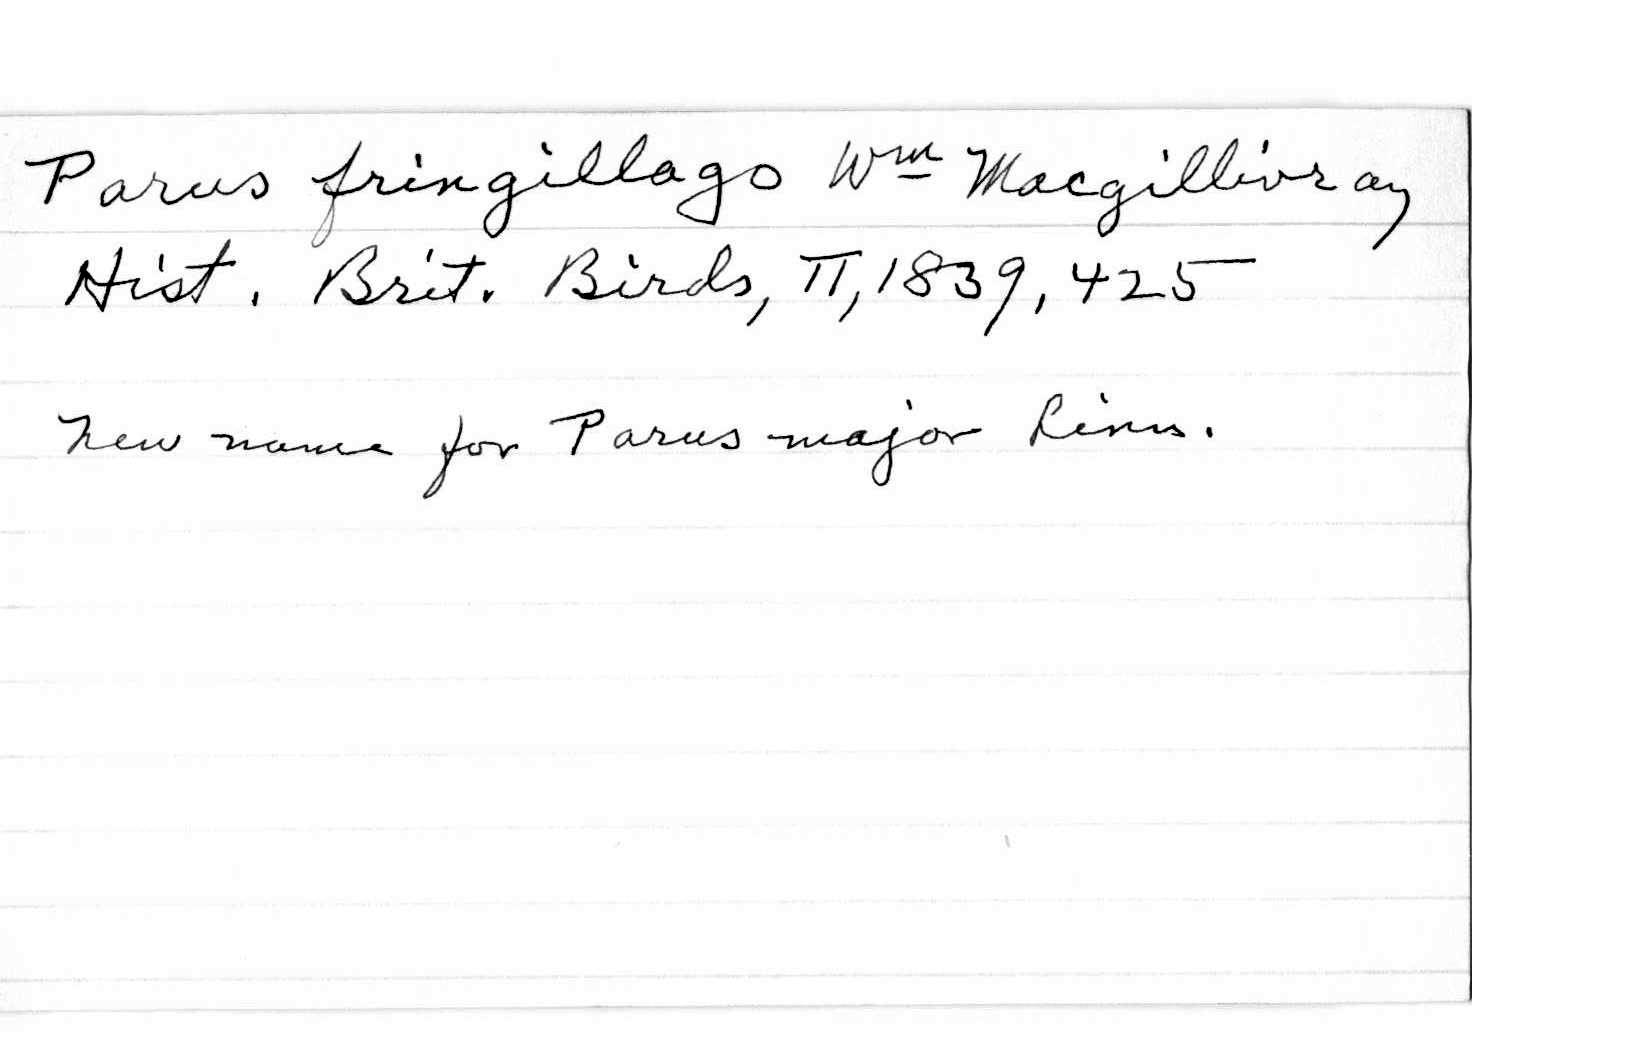 Parus fringillago Wm Macgillivray
Hist. Brit. Birds, II, 1839, 425
New name for Parus major Linn.